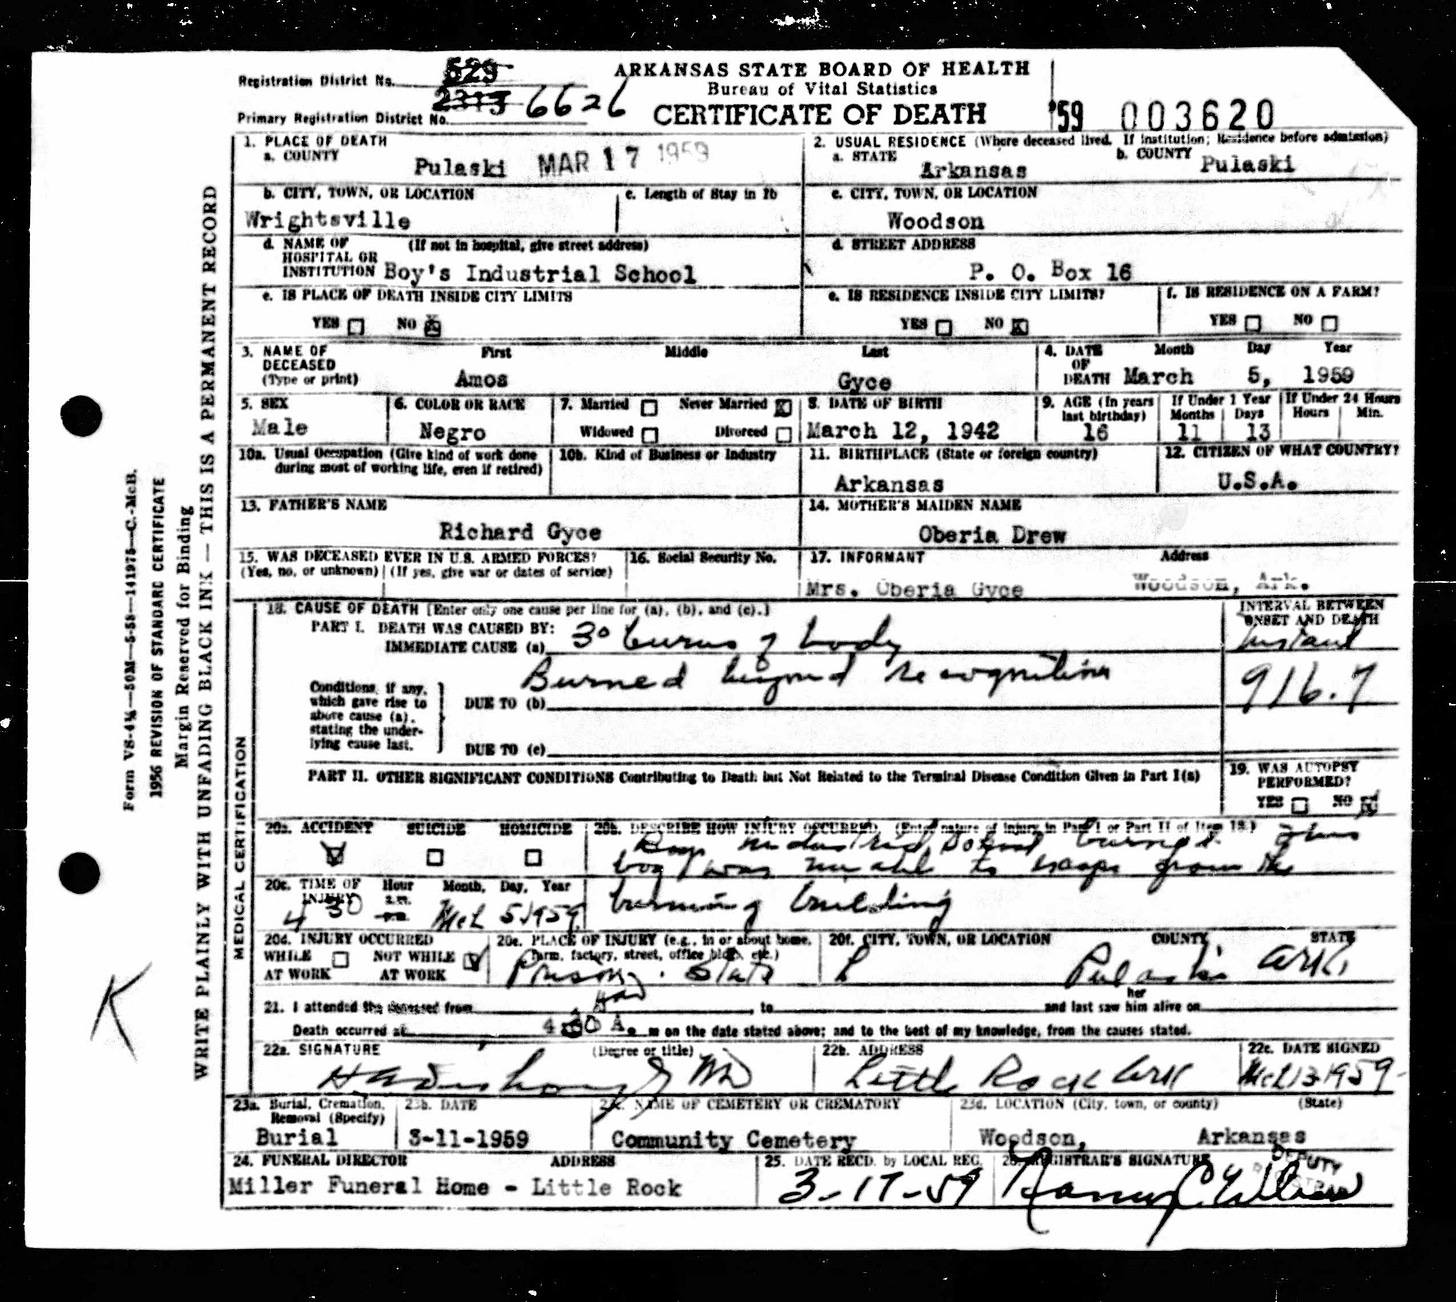 Registration District No. 529
ARKANSAS STATE BOARD OF HEALTH
Bureau of Vital Statistics
2313 6626
Primary Registration District No.
CERTIFICATE OF DEATH
'59 003620
1. PLACE OF DEATH
a. COUNTY
Pulaski MAR 17 1959
2. USUAL RESIDENCE (Where deceased lived. If institution; Residence before admission)
a. STATE Arkansas b. COUNTY Pulaski
b. CITY, TOWN, OR LOCATION
Wrightsville
c. Length of Stay in 1b
c. CITY, TOWN, OR LOCATION
Woodson
d. NAME OF HOSPITAL OR INSTITUTION (If not in hospital, give street address)
Boy's Industrial School
d. STREET ADDRESS
P. O. Box 16
e. IS PLACE OF DEATH INSIDE CITY LIMITS
YES NO X
e. IS RESIDENCE INSIDE CITY LIMITS?
YES NO X
f. IS RESIDENCE ON A FARM?
YES NO
3. NAME OF DECEASED (Type or print)
First Middle Last
Amos Gyce
4. DATE OF DEATH Month Day Year
March 5, 1959
5. SEX
Male
6. COLOR OR RACE
Negro
7. Married Never Married X
Widowed Divorced
8. DATE OF BIRTH
March 12, 1942
9. AGE (In years last birthday)
16
If Under 1 Year
Months Days
11 13
If Under 24 Hours
Hours Min.
10a. Usual Occupation (Give kind of work done during most of working life, even if retired)
10b. Kind of Business or Industry
11. BIRTHPLACE (State or foreign country)
Arkansas
12. CITIZEN OF WHAT COUNTRY?
U.S.A.
13. FATHER'S NAME
Richard Gyce
14. MOTHER'S MAIDEN NAME
Oberia Drew
15. WAS DECEASED EVER IN U.S. ARMED FORCES?
(Yes, no, or unknown) (If yes, give war or dates of service)
16. Social Security No.
17. INFORMANT Address
Mrs. Oberia Gyce Woodson, Ark.
18. CAUSE OF DEATH [Enter only one cause per line for (a), (b), and (c).]
PART I. DEATH WAS CAUSED BY:
IMMEDIATE CAUSE (a) 3° burns of body
Burned beyond recognition
INTERVAL BETWEEN ONSET AND DEATH
Instant
916.7
Conditions, if any, which gave rise to above cause (a), stating the underlying cause last.
DUE TO (b)
DUE TO (c)
PART II. OTHER SIGNIFICANT CONDITIONS Contributing to Death but Not Related to the Terminal Disease Condition Given in Part I(a)
19. WAS AUTOPSY PERFORMED?
YES NO X
20a. ACCIDENT SUICIDE HOMICIDE
20b. DESCRIBE HOW INJURY OCCURRED. (Enter nature of injury in Part I or Part II of Item 18.)
Boys Industrial School burned. This
boy was unable to escape from the
burning building
20c. TIME OF INJURY Hour a.m. p.m. Month, Day, Year
4 30 Mch 5 1959
20d. INJURY OCCURRED
WHILE AT WORK NOT WHILE AT WORK
20e. PLACE OF INJURY (e.g., in or about home, farm, factory, street, office bldg., etc.)
Prison. State
20f. CITY, TOWN, OR LOCATION COUNTY STATE
Pulaski Ark.
21. I attended the deceased from to and last saw her him alive on
Death occurred at 4:30 A. m on the date stated above; and to the best of my knowledge, from the causes stated.
22a. SIGNATURE (Degree or title)
MD
22b. ADDRESS
Little Rock Ark
22c. DATE SIGNED
Mch 13 1959
23a. Burial, Cremation, Removal (Specify)
Burial
23b. DATE
3-11-1959
23c. NAME OF CEMETERY OR CREMATORY
Community Cemetery
23d. LOCATION (City, town, or county) (State)
Woodson, Arkansas
24. FUNERAL DIRECTOR ADDRESS
Miller Funeral Home - Little Rock
25. DATE RECD. by LOCAL REG.
3-17-59
26. REGISTRAR'S SIGNATURE
DEPUTY
MEDICAL CERTIFICATION
Form VS-4½—50M—5-58—141975—C.-McB.
1956 REVISION OF STANDARD CERTIFICATE
Margin Reserved for Binding
WRITE PLAINLY WITH UNFADING BLACK INK — THIS IS A PERMANENT RECORD
K